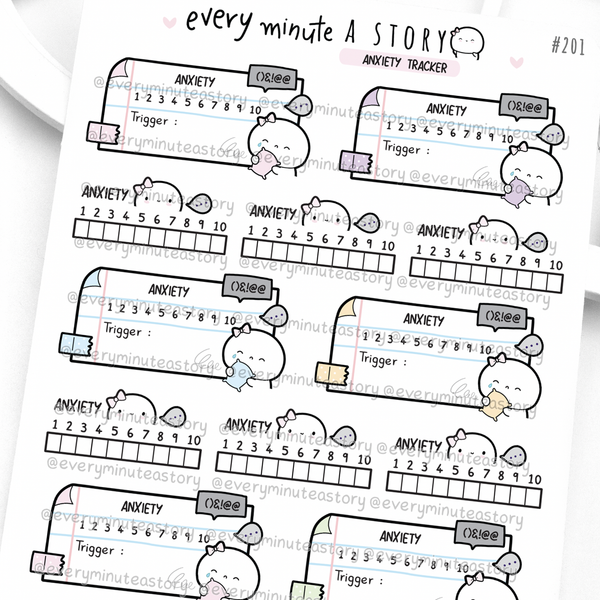 every minute A STORY
#201
ANXIETY TRACKER
ANXIETY
()&!@@
1 2 3 4 5 6 7 8 9 10
Trigger :
ANXIETY
()&!@@
1 2 3 4 5 6 7 8 9 10
Trigger :
@everyminuteastory @everyminuteastory
@everyminuteastory @everyminuteastory
ANXIETY
1 2 3 4 5 6 7 8 9 10
ANXIETY
1 2 3 4 5 6 7 8 9 10
ANXIETY
1 2 3 4 5 6 7 8 9 10
@everyminuteastory @everyminuteastory
@everyminuteastory @everyminuteastory
ANXIETY
()&!@@
1 2 3 4 5 6 7 8 9 10
Trigger :
ANXIETY
()&!@@
1 2 3 4 5 6 7 8 9 10
Trigger :
@everyminuteastory @everyminuteastory
@everyminuteastory @everyminuteastory
ANXIETY
1 2 3 4 5 6 7 8 9 10
ANXIETY
1 2 3 4 5 6 7 8 9 10
ANXIETY
1 2 3 4 5 6 7 8 9 10
@everyminuteastory @everyminuteastory
@everyminuteastory @everyminuteastory
ANXIETY
()&!@@
1 2 3 4 5 6 7 8 9 10
Trigger :
ANXIETY
()&!@@
1 2 3 4 5 6 7 8 9 10
Trigger :
@everyminuteastory @everyminuteastory
@everyminuteastory @everyminuteastory